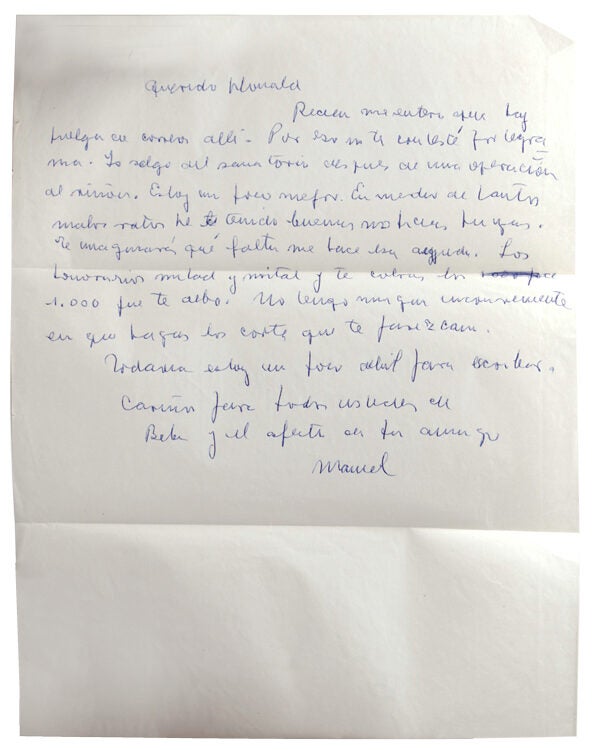 Querido Donald
Recien me entero que hay
huelga de correos allí. Por eso no te contesté por telegra
ma. Yo salgo del sanatorio después de una operación
al riñon. Estoy un poco mejor. En medio de tantos
malos ratos he tenido buenas noticias tuyas.
Te imaginarás qué falta me hace esa ayuda. Los
honorarios mitad y mitad y te cobras los
1.000 que te debo. No tengo ningun inconveniente
en que hagas los cortes que te parezcan.
Todavia estoy un poco debil para escribir.
Cariños para todos ustedes de
Beba y el afecto de tu amigo
Manuel